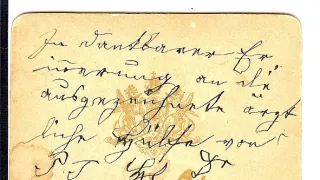 In dankbarer Er
innerung an die
ausgezeichnete ärzt
liche Hülfe von